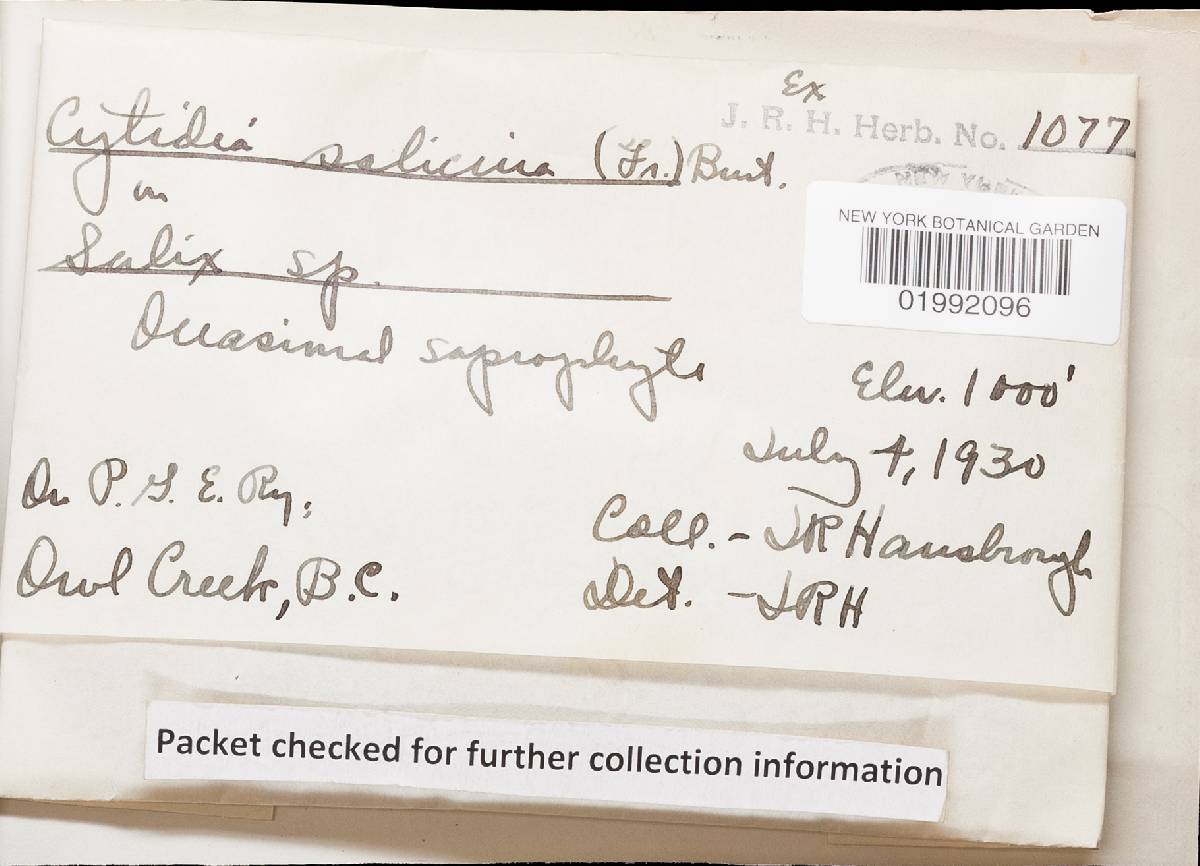 Ex
J. R. H. Herb. No. 1077
Cytidia salicina (Fr.) Burt.
on
NEW YORK
NEW YORK BOTANICAL GARDEN
01992096
Salix sp.
saprophyte
Elev. 1000'
July 4, 1930
On P. G. E. Ry,
Coll. - JR Hansbrough
Owl Creek, B.C.
Det. - JRH
Packet checked for further collection information